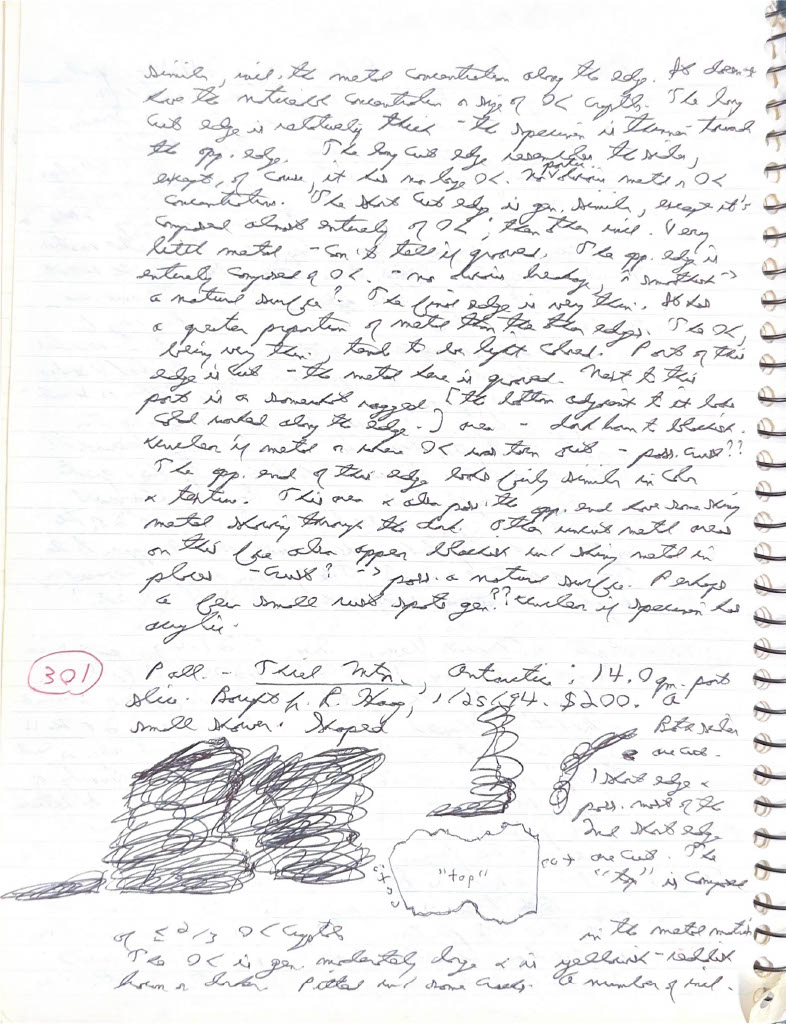 similar, incl. the metal concentration along the edge. It doesn't
have the noticeable concentration or size of OL crystals. The long
cut edge is relatively thick - the specimen is thinner toward
the opp. edge. The long cut edge resembles the sides,
except, of course, it has no large OL. No obvious metal or OL
concentration. The short cut edge is gen. similar, except it's
composed almost entirely of OL; than then incl. Very
little metal - can't tell if grooved. The opp. edge is
entirely composed of OL. - no obvious breaks, smoothish ->
a natural surface? The final edge is very thin. It has
a greater proportion of metal than the other edges. The OL,
being very thin, tend to be light colored. Part of this
edge is cut - the metal here is grooved. Next to this
part is a somewhat ragged [the bottom adjacent to it looks
cold worked along the edge.] area - dark brown to blackish.
Unclear if metal or where OL was torn out - poss. crust??
The opp. end of this edge looks fairly similar in color
& texture. This area & also poss. the opp. end have some shiny
metal showing through the dark. Other uncut metal areas
on this face also appear blackish w/ shiny metal in
places - crust? -> poss. a natural surface. Perhaps
a few small rust spots gen.?? Unclear if specimen has
acrylic.
301 Pall. - Thiel Mtn., Antarctica; 14.0 gm. part
slice. Bought fr. R. Haag, 1/25/94. $200. A
small shower. Shaped
Both sides
are cut.
1 short edge &
poss. most of the
2nd short edge
cut "top" cut are cut. The
"top" is composed
of ≤ 2/3 OL crystals in the metal matrix
The OL is gen. moderately large & is yellowish-reddish
brown or darker. Pitted w/ some cracks. A number of incl.